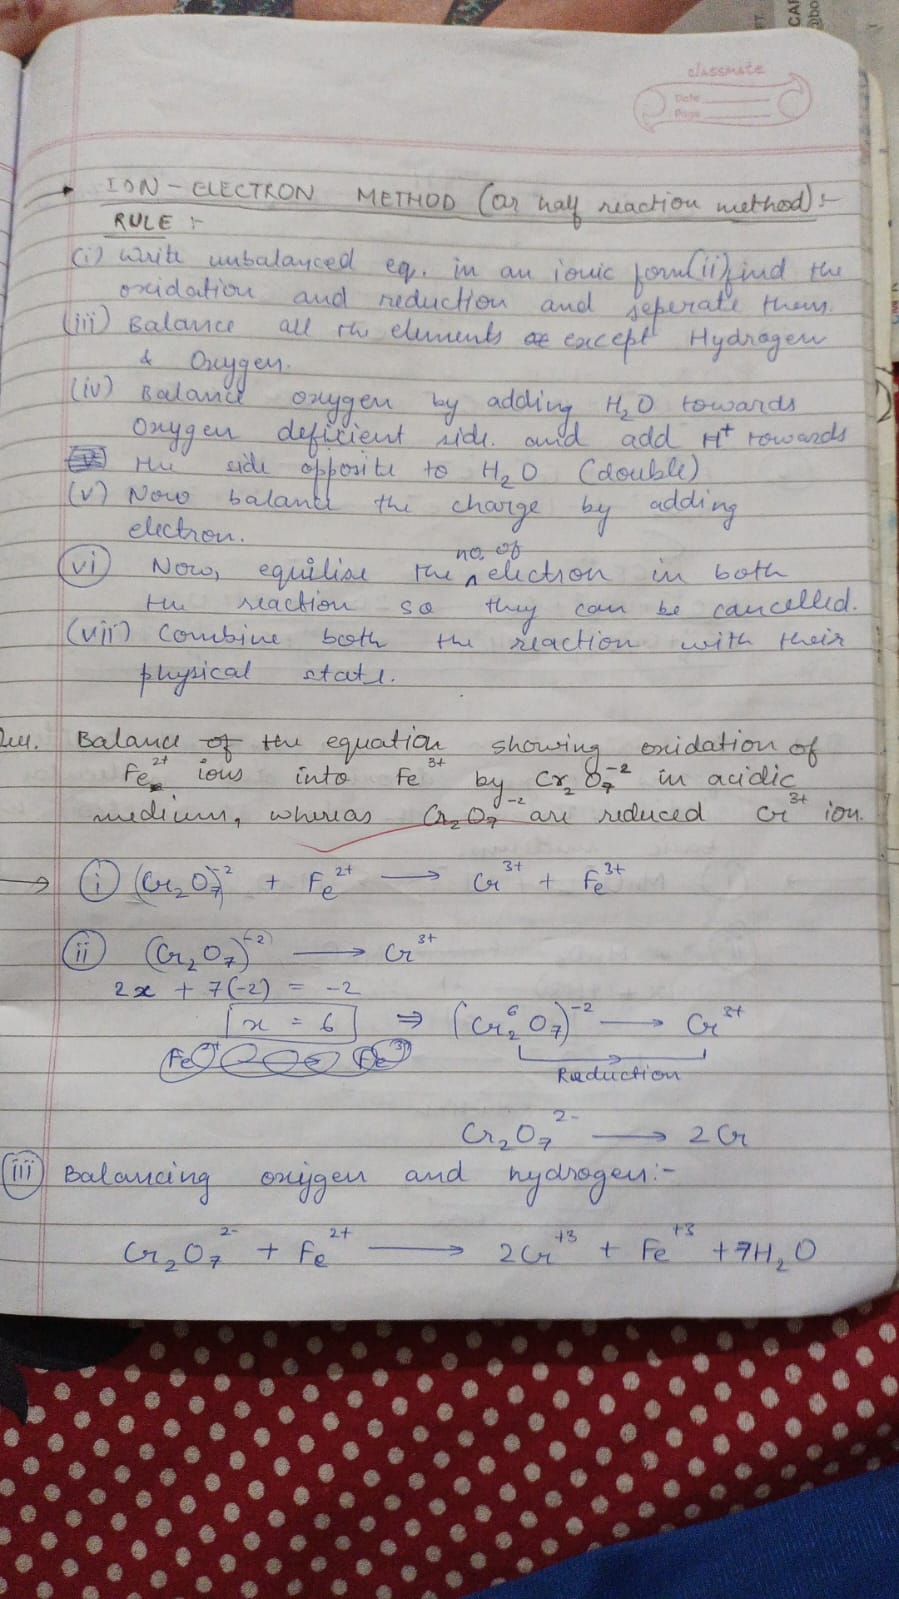 CAF
@bo
classmate
Date
Page
ION-ELECTRON METHOD (or half reaction method):-
RULE :-
(i) Write unbalanced eq. in an ionic form (ii) find the
oxidation and reduction and seperate them.
(iii) Balance all the elements except Hydrogen
& Oxygen.
(iv) Balance oxygen by adding H₂O towards
Oxygen deficient side. and add H⁺ towards
the side opposite to H₂O (double)
(v) Now balance the charge by adding
electron.
(vi) Now, equilise the no. of electron in both
the reaction so they can be cancelled.
(vii) Combine both the reaction with their
physical state.
Balance of the equation showing oxidation of
Fe²⁺ ions into Fe³⁺ by Cr₂O₇⁻² in acidic
medium, whereas Cr₂O₇⁻² are reduced Cr³⁺ ion.
→ (i) (Cr₂O₇)⁻² + Fe²⁺ → Cr³⁺ + Fe³⁺
(ii) (Cr₂O₇)⁽⁻²⁾ → Cr³⁺
2x + 7(-2) = -2
x = 6 ⇒ (Cr₂⁶O₇)⁻² → Cr³⁺
Reduction
Cr₂O₇²⁻ → 2Cr
(iii) Balancing oxygen and hydrogen:-
Cr₂O₇²⁻ + Fe²⁺ → 2Cr⁺³ + Fe⁺³ + 7H₂O